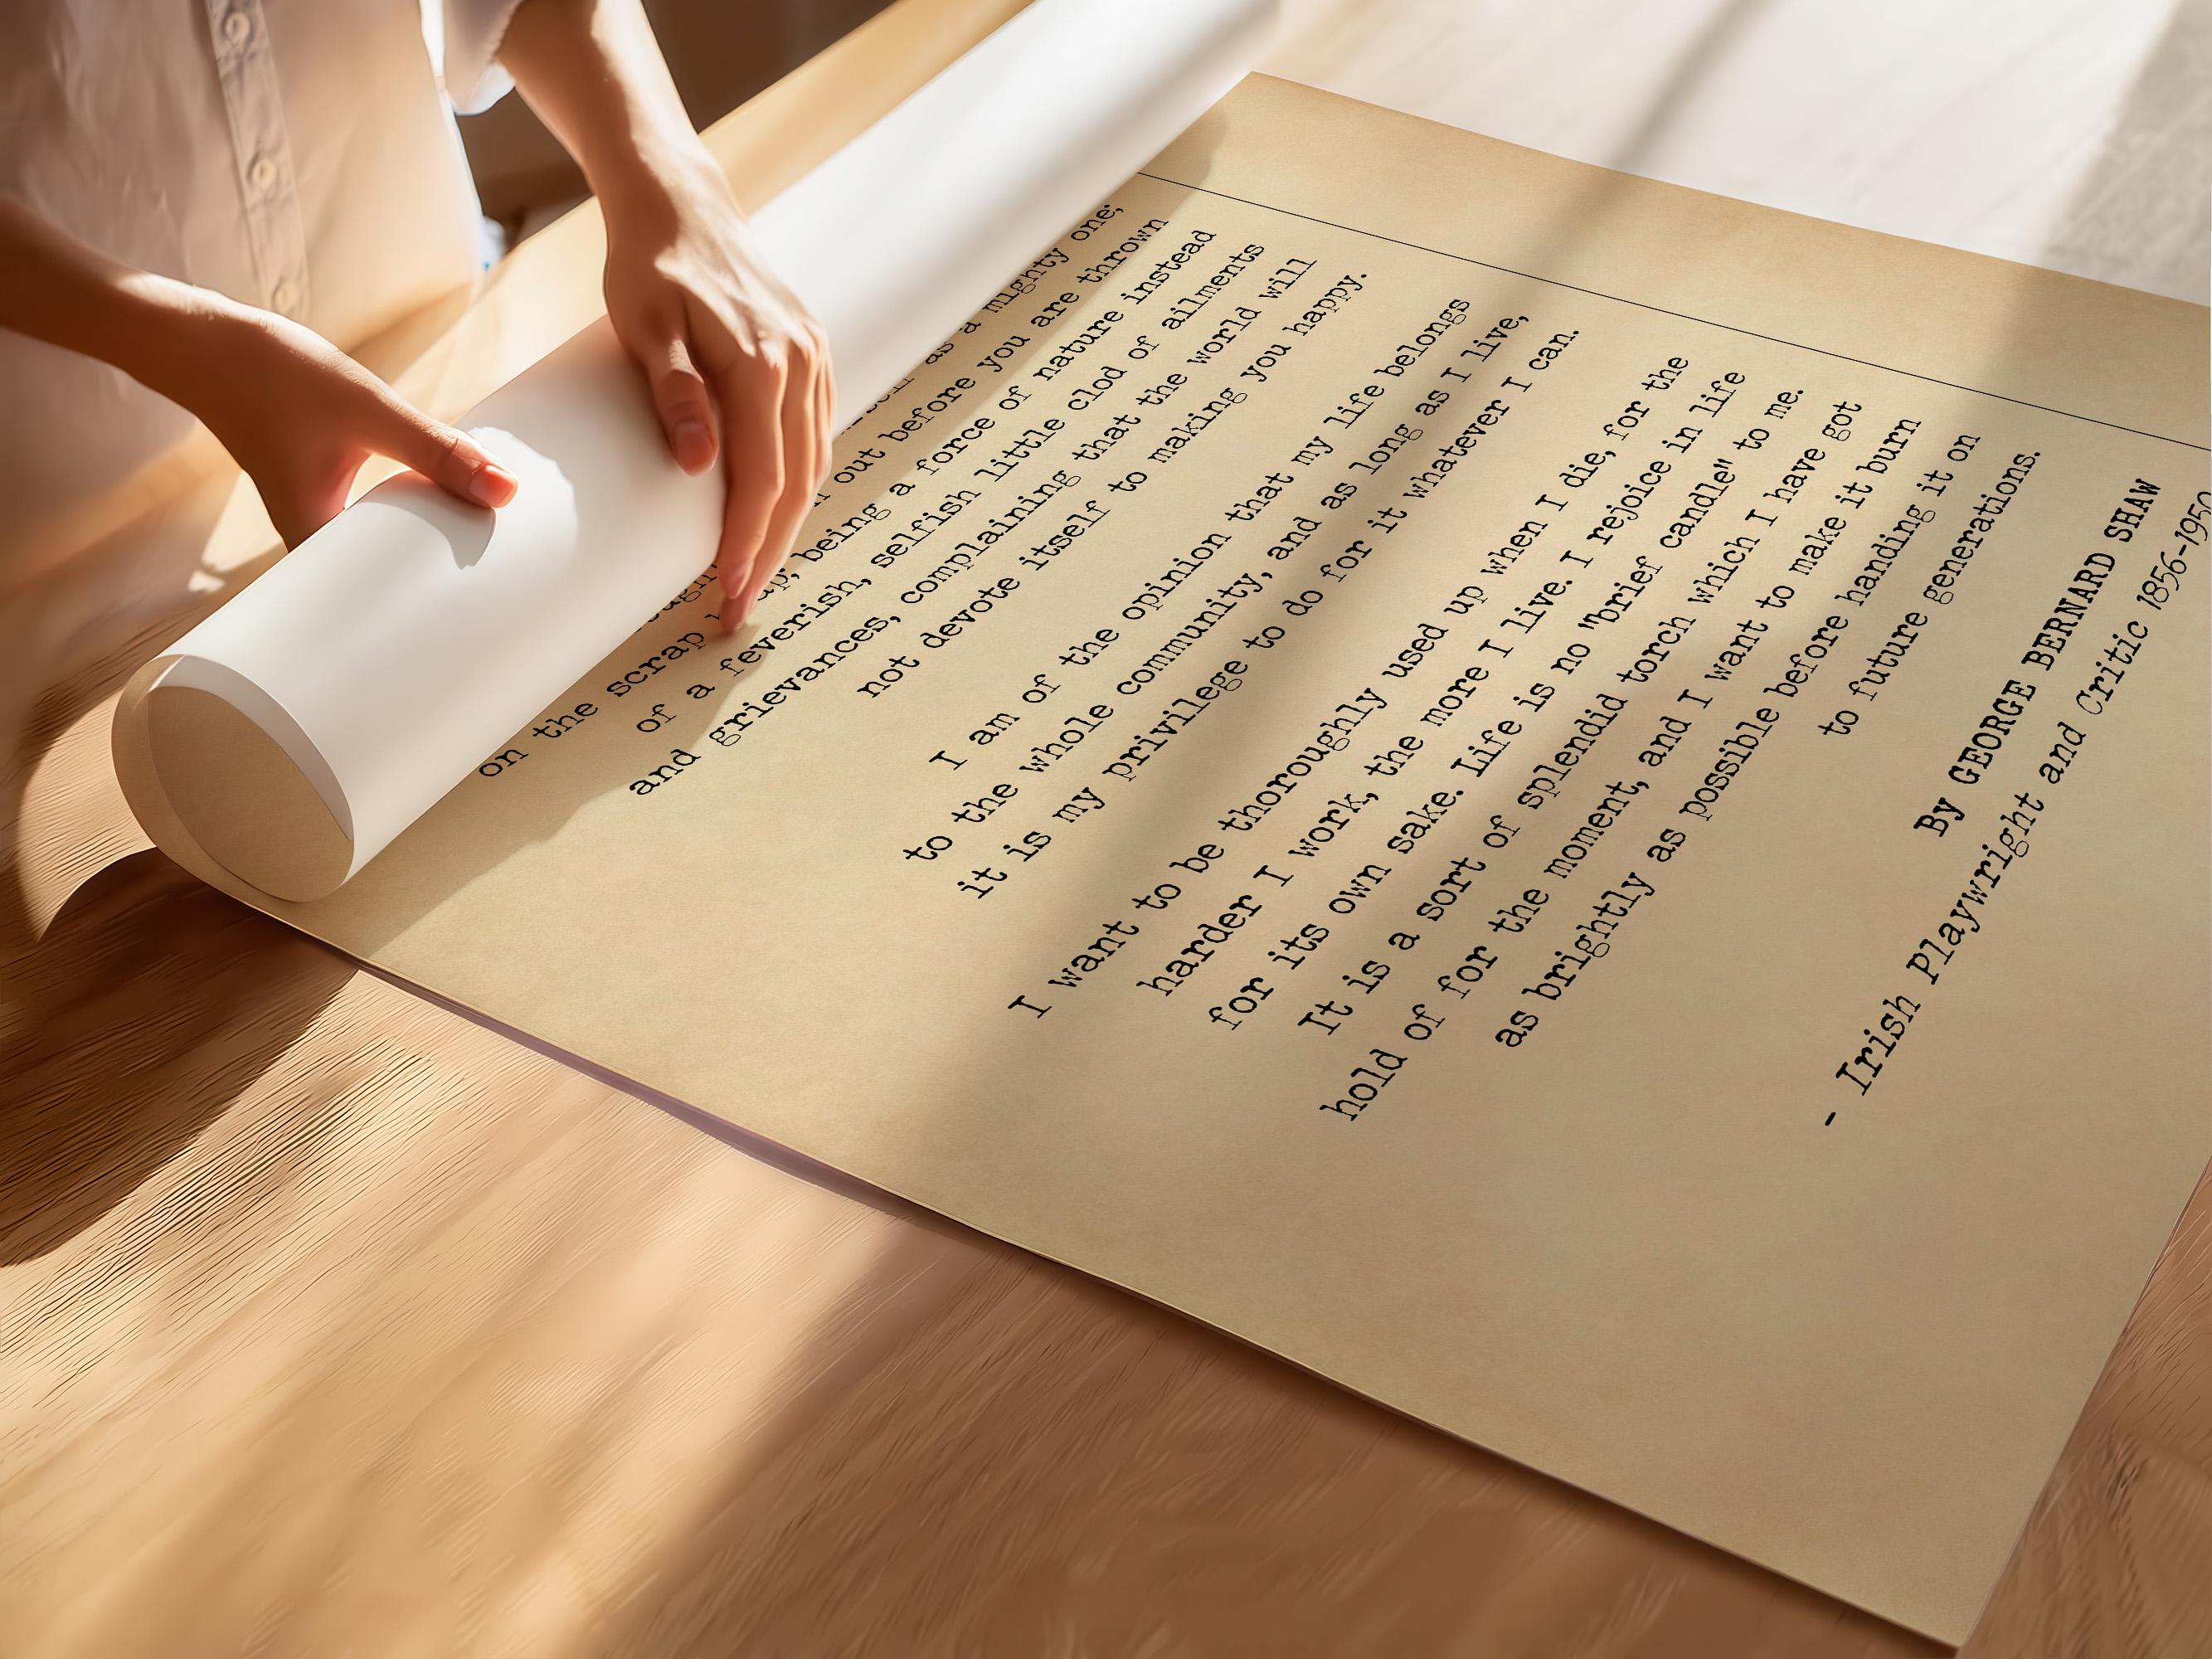 as a mighty one;
out before you are thrown
on the scrap being a force of nature instead
of a feverish, selfish little clod of ailments
and grievances, complaining that the world will
not devote itself to making you happy.
I am of the opinion that my life belongs
to the whole community, and as long as I live,
it is my privilege to do for it whatever I can.
I want to be thoroughly used up when I die, for the
harder I work, the more I live. I rejoice in life
for its own sake. Life is no "brief candle" to me.
It is a sort of splendid torch which I have got
hold of for the moment, and I want to make it burn
as brightly as possible before handing it on
to future generations.
By GEORGE BERNARD SHAW
- Irish Playwright and Critic 1856-1950